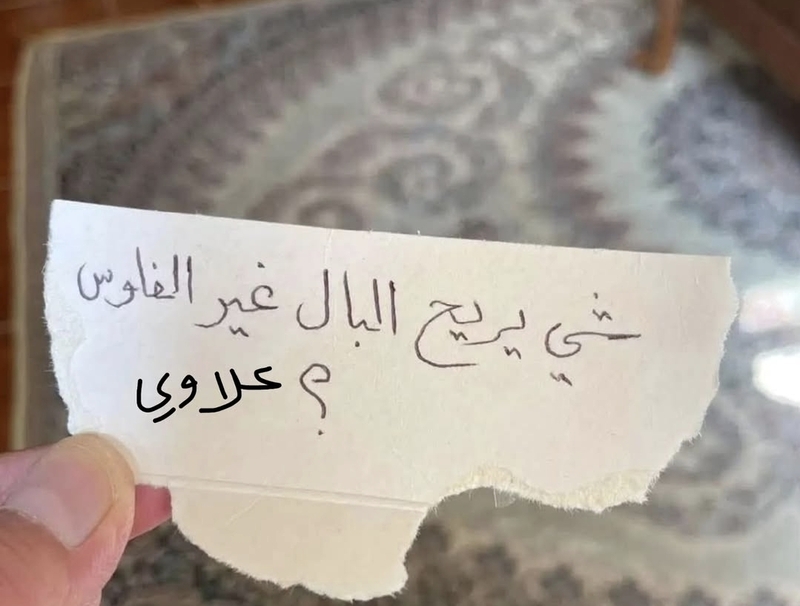 شي يريح البال غير الفلوس
؟ علاوي